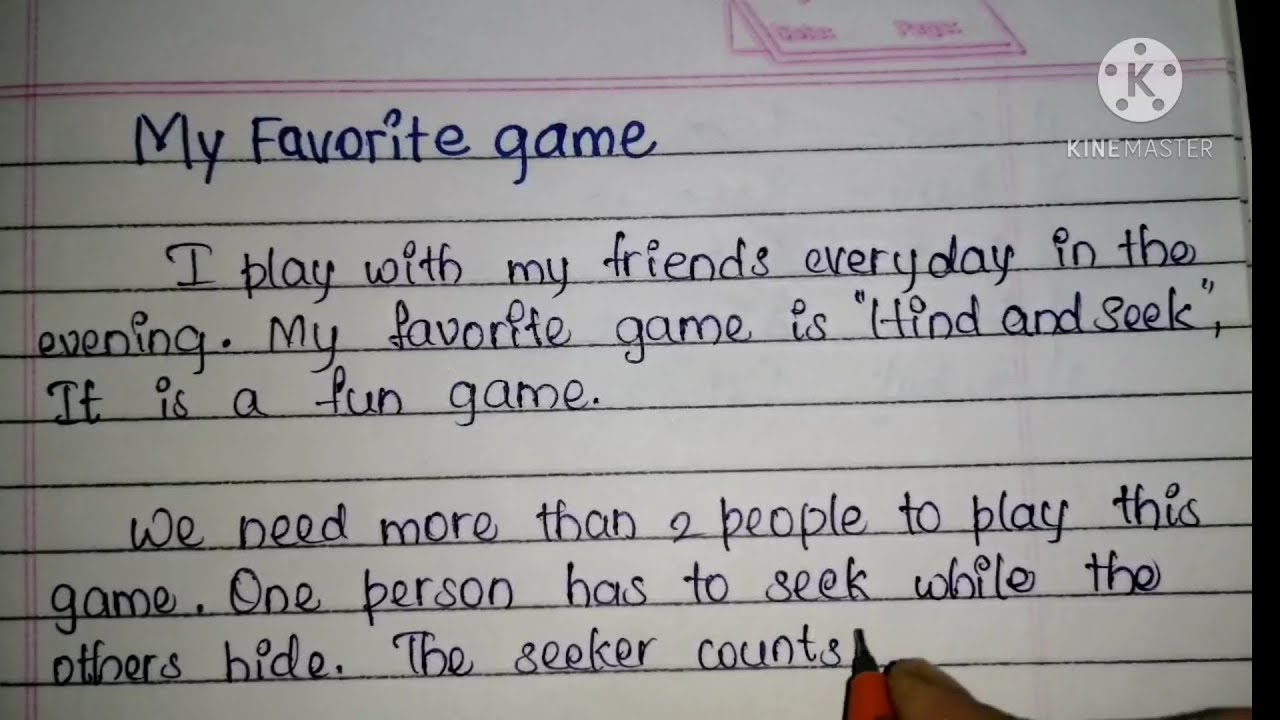 Date: Page:
K
KINEMASTER
My Favorite game
I play with my friends everyday in the
evening. My favorite game is "Hind and seek",
It is a fun game.
We need more than 2 people to play this
game. One person has to seek while the
others hide. The seeker counts